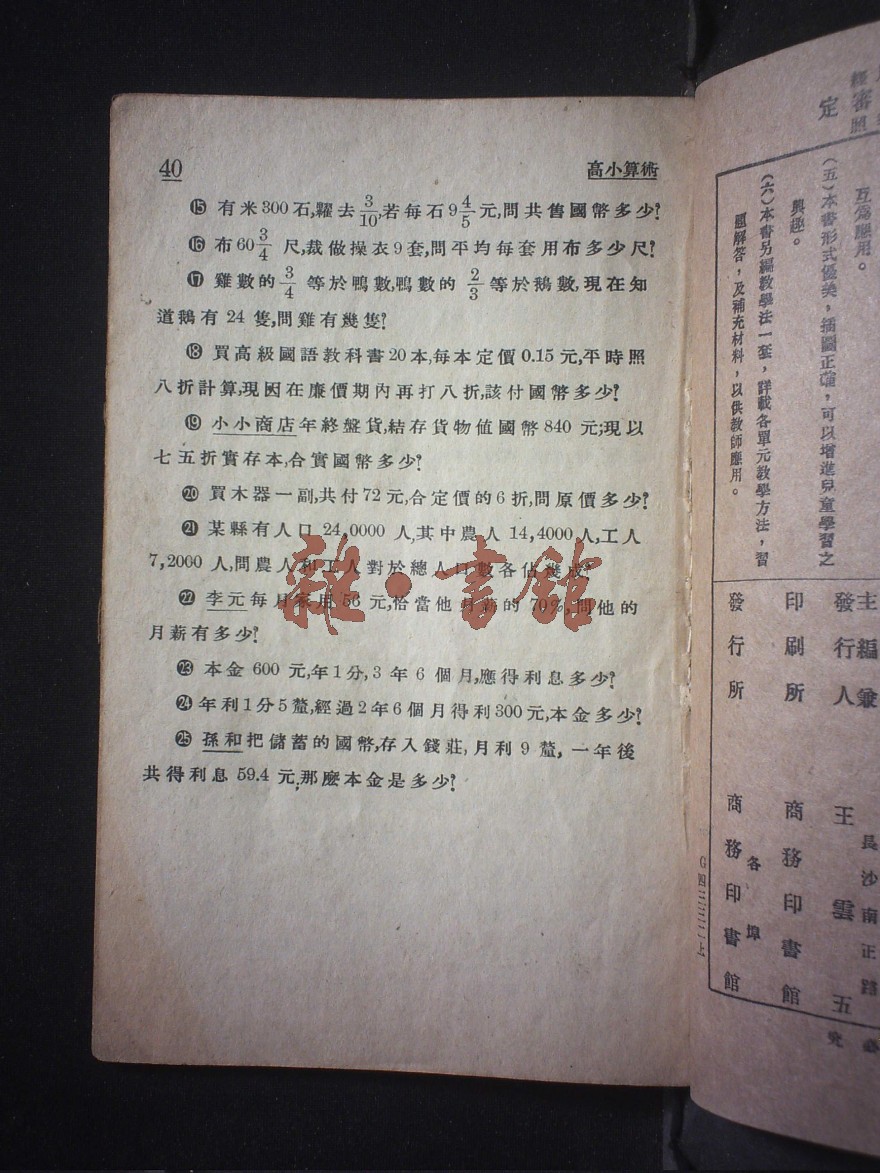 40 高小算術
⑮ 有米300石,糶去3/10,若每石9 4/5元,問共售國幣多少?
⑯ 布60 3/4 尺,裁做操衣9套,問平均每套用布多少尺?
⑰ 雞數的 3/4 等於鴨數,鴨數的 2/3 等於鵝數,現在知
道鵝有 24 隻,問雞有幾隻?
⑱ 買高級國語教科書20本,每本定價0.15元,平時照
八折計算,現因在廉價期內再打八折,該付國幣多少?
⑲ 小小商店年終盤貨,結存貨物値國幣840元;現以
七五折實存本,合實國幣多少?
⑳ 買木器一副,共付72元,合定價的6折,問原價多少?
㉑ 某縣有人口 24,0000 人,其中農人 14,4000人,工人
7,2000 人,問農人和工人對於總人口數各佔幾成?
㉒ 李元每月家用 56 元,恰當他月薪的 70%,問他的
月薪有多少?
㉓ 本金 600 元,年1分,3 年 6 個月,應得利息多少?
㉔ 年利1分5釐,經過2年6個月得利300元,本金多少?
㉕ 孫和把儲蓄的國幣,存入錢莊,月利9釐,一年後
共得利息59.4元,那麽本金是多少?
雜·書館
定
審
照
互爲應用。
(五)本書形式優美,插圖正確,可以增進兒童學習之
興趣。
(六)本書另編教學法一套,詳載各單元教學方法,習
題解答,及補充材料,以供教師應用。
主編兼
發行人
王雲五
長沙南正路
印刷所
商務印書館
發行所
各埠
商務印書館
G四三三三上
究
必